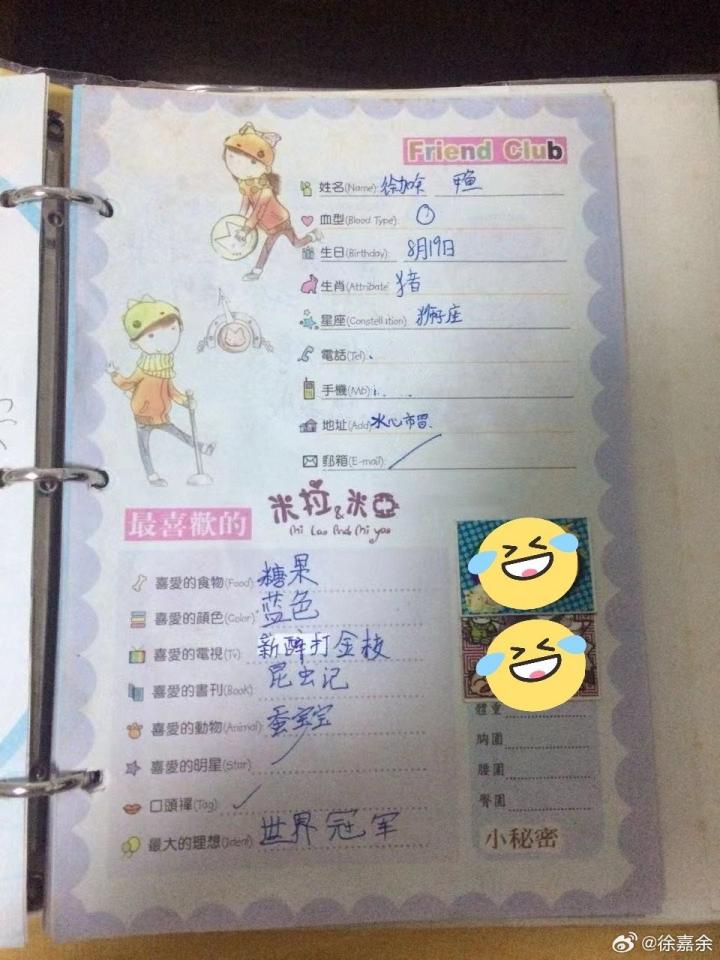 Friend Club
姓名(Name): 徐加余
血型(Blood Type): O
生日(Birthday): 8月19日
生肖(Attribate) 猪
星座(Constellation) 狮子座
電話(Tel)
手機(Mb):
地址(Add) 水心市
郵箱(E-mail):
米拉&米亞
Mi Laa And Mi yaa
最喜歡的
喜愛的食物(Food) 糖果
喜愛的顏色(Color) 蓝色
喜愛的電視(Tv) 新醉打金枝
喜愛的書刊(Book) 昆虫记
喜愛的動物(Animal) 蚕宝宝
喜愛的明星(Star)
口頭禪(Tag)
最大的理想(Ideal) 世界冠军
體重
胸圍
腰圍
臀圍
小秘密
@徐嘉余